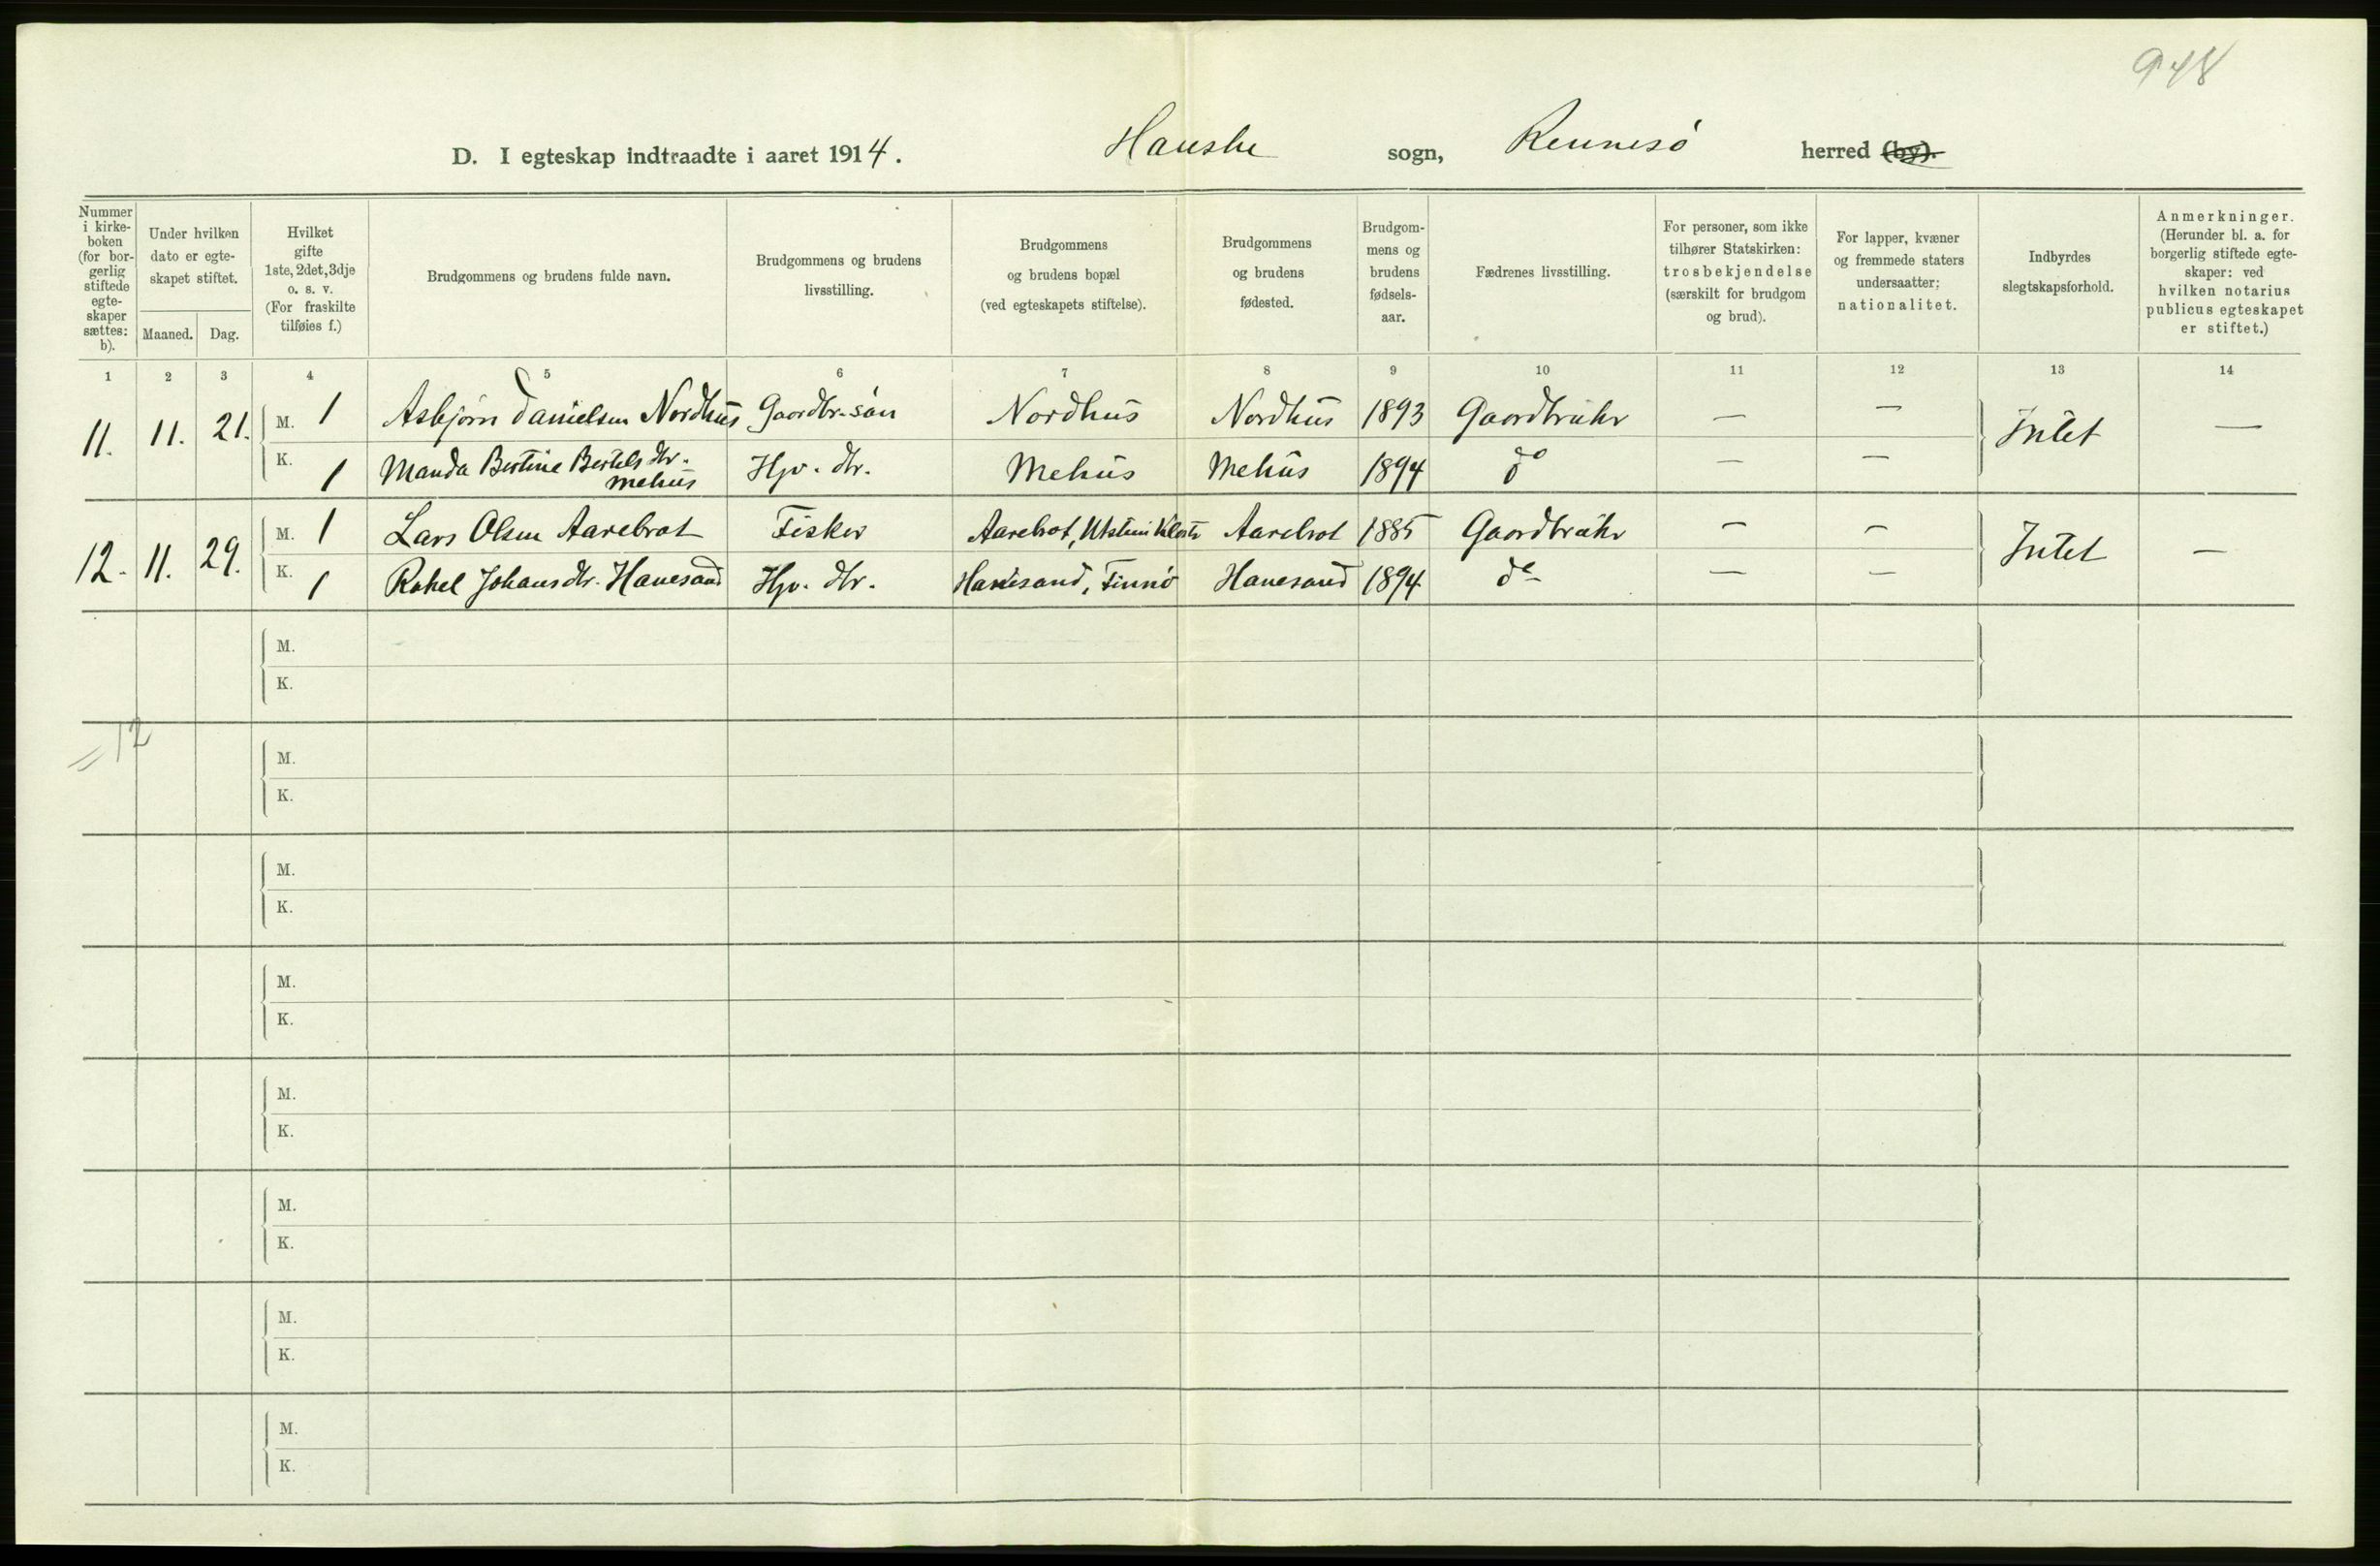 948
D. I egteskap indtraadte i aaret 1914. Hauske sogn, Rennesö herred (by).
Nummer i kirke-boken (for bor-gerlig stiftede egte-skaper sættes: b).
Under hvilken dato er egte-skapet stiftet.
Maaned. Dag.
Hvilket gifte 1ste, 2det, 3dje o. s. v. (For fraskilte tilføies f.)
Brudgommens og brudens fulde navn.
Brudgommens og brudens livsstilling.
Brudgommens og brudens bopæl (ved egteskapets stiftelse).
Brudgommens og brudens fødested.
Brudgom-mens og brudens fødsels-aar.
Fædrenes livsstilling.
For personer, som ikke tilhører Statskirken: trosbekjendelse (særskilt for brudgom og brud).
For lapper, kvæner og fremmede staters undersaatter; nationalitet.
Indbyrdes slegtskapsforhold.
Anmerkninger. (Herunder bl. a. for borgerlig stiftede egte-skaper: ved hvilken notarius publicus egteskapet er stiftet.)
1 2 3 4 5 6 7 8 9 10 11 12 13 14
11. 11. 21. M. 1 Asbjørn Danielsen Nordhus Gaardbr-søn Nordhus Nordhus 1893 Gaardbruker — — Intet —
K. 1 Manda Bertine Bertels dtr. Mehus Hjv. dtr. Mehus Mehus 1894 do — —
12. 11. 29. M. 1 Lars Olsen Aarebrot Fisker Aarebrot, Utstein Kloster Aarebrot 1885 Gaardbruker — — Intet —
K. 1 Rakel Johans dtr. Hanesand Hjv. dtr. Hanesand, Finnö Hanesand 1894 do — —
M.
K.
= 12
M.
K.
M.
K.
M.
K.
M.
K.
M.
K.
M.
K.
M.
K.